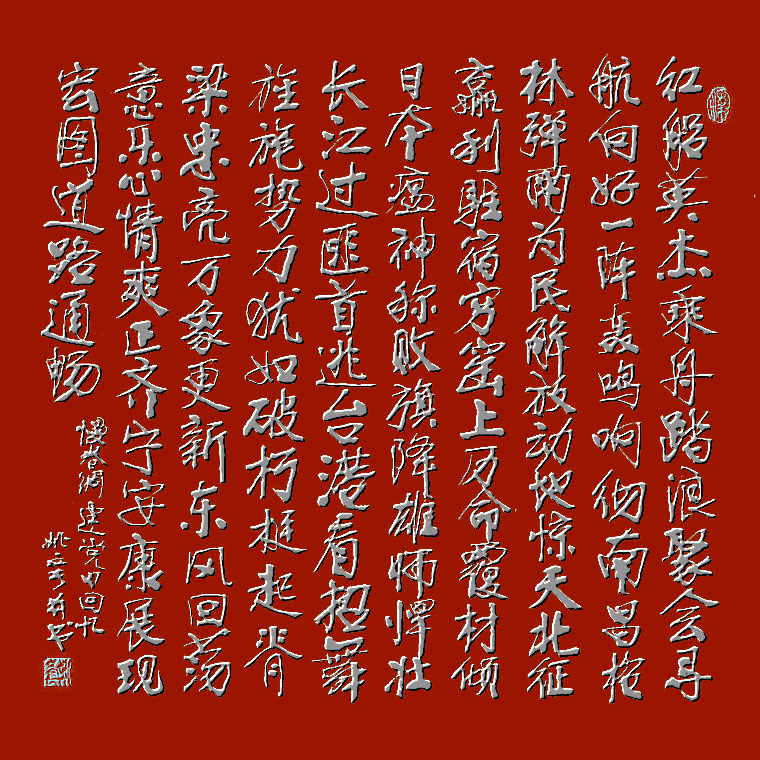 红船英杰乘舟踏浪聚会寻
航向好一阵轰鸣响彻南昌枪
林弹雨为民解放动地惊天北征
赢利驻宿穷窑上命覆材倾
日本瘟神称败旗降雄师悍壮
长江过匪首逃台港看招舞
旌旄势力犹如破朽挺起脊
梁忠亮万象更新东风回荡
意乐心情爽正齐宁安康展现
宏图道路通畅
慢卷绸建党回忆
姚书